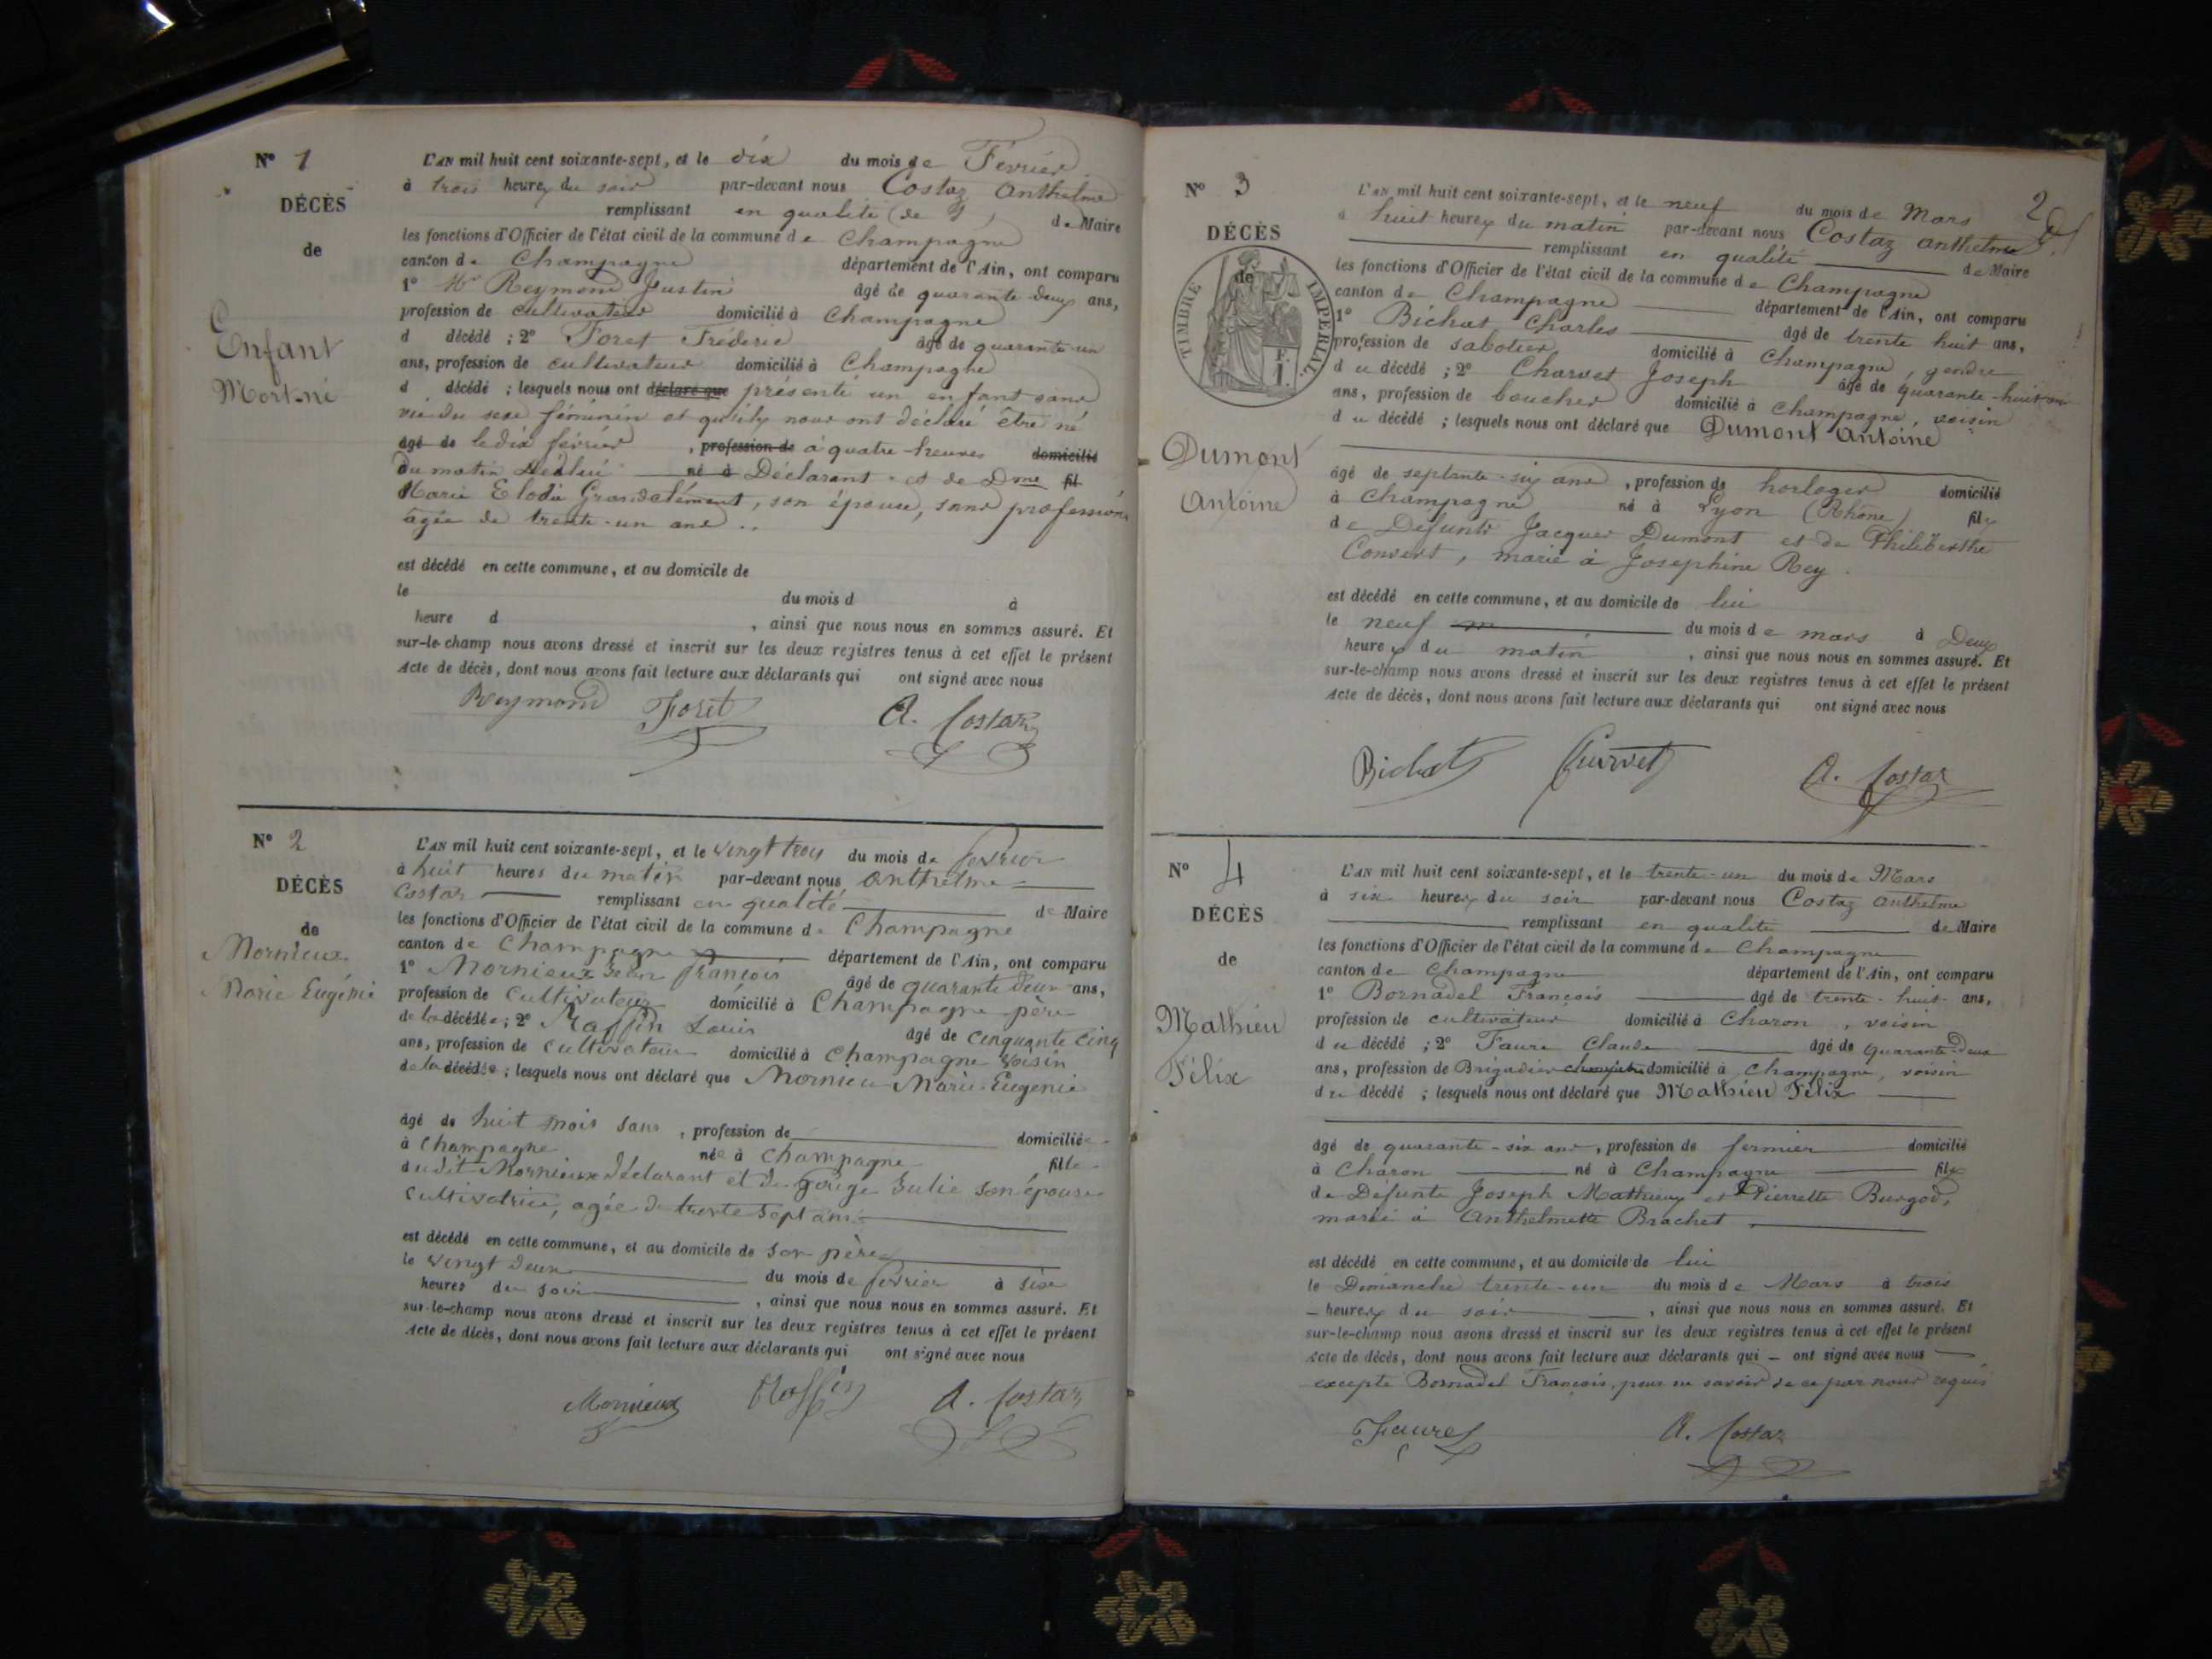 N° 1
DÉCÈS
de
Enfant
Mort-né
L'AN mil huit cent soixante-sept, et le dix du mois de Février
à trois heures du soir par-devant nous Costaz Anthelme
remplissant en qualité de Maire
les fonctions d'Officier de l'état civil de la commune de Champagne
canton de Champagne département de l'Ain, ont comparu
1° Reymond Justin âgé de quarante-deux ans,
profession de cultivateur domicilié à Champagne
d décédé ; 2° Foret Fréderic âgé de quarante-un
ans, profession de cultivateur domicilié à Champagne
d décédé ; lesquels nous ont déclaré que présenté un enfant sans
vie du sexe féminin et qu'ils nous ont déclaré être né
âgé de le dix février , profession de à quatre heures domicilié
du matin de lui né à Déclarant et de Dme fil
Marie Elodie Grandclément, son épouse, sans profession
agée de trente-un ans ..
est décédé en cette commune, et au domicile de
le du mois d à
heure d , ainsi que nous nous en sommes assuré. Et
sur-le-champ nous avons dressé et inscrit sur les deux registres tenus à cet effet le présent
Acte de décès, dont nous avons fait lecture aux déclarants qui ont signé avec nous
Reymond Foret A. Costaz
N° 2
DÉCÈS
de
Mornieux
Marie Eugénie
L'AN mil huit cent soixante-sept, et le vingt trois du mois de février
à huit heures du matin par-devant nous Anthelme
Costaz remplissant en qualité de Maire
les fonctions d'Officier de l'état civil de la commune de Champagne
canton de Champagne département de l'Ain, ont comparu
1° Mornieux Jean François âgé de quarante deux ans,
profession de cultivateur domicilié à Champagne père
de la décédée ; 2° Maffin Louis âgé de cinquante cinq
ans, profession de cultivateur domicilié à Champagne voisin
de la décédée ; lesquels nous ont déclaré que Mornieu Marie Eugénie
âgé de huit mois sans , profession de domiciliée
à Champagne née à Champagne fille
dudit Mornieux déclarant et de Julie son épouse
cultivatrice, agée de trente sept ans
est décédé en cette commune, et au domicile de son père
le vingt deux du mois de février à six
heures du soir , ainsi que nous nous en sommes assuré. Et
sur-le-champ nous avons dressé et inscrit sur les deux registres tenus à cet effet le présent
Acte de décès, dont nous avons fait lecture aux déclarants qui ont signé avec nous
Mornieux Maffin A. Costaz
2
N° 3
DÉCÈS
de
TIMBRE IMPÉRIAL
F.
1.
Dumont
Antoine
L'AN mil huit cent soixante-sept, et le neuf du mois de Mars
à huit heures du matin par-devant nous Costaz Anthelme
remplissant en qualité de Maire
les fonctions d'Officier de l'état civil de la commune de Champagne
canton de Champagne département de l'Ain, ont comparu
1° Bichat Charles âgé de trente huit ans,
profession de sabotier domicilié à Champagne, gendre
du décédé ; 2° Charvet Joseph âgé de quarante-huit ans
ans, profession de boucher domicilié à Champagne, voisin
du décédé ; lesquels nous ont déclaré que Dumont Antoine
âgé de septante-six ans , profession de horloger domicilié
à Champagne né à Lyon (Rhône) fils
de Defunts Jacques Dumont et de Philiberthe
Convert, marié à Josephine Rey.
est décédé en cette commune, et au domicile de lui
le neuf du mois de mars à Deux
heures du matin , ainsi que nous nous en sommes assuré. Et
sur-le-champ nous avons dressé et inscrit sur les deux registres tenus à cet effet le présent
Acte de décès, dont nous avons fait lecture aux déclarants qui ont signé avec nous
Bichat Charvet A. Costaz
N° 4
DÉCÈS
de
Mathieu
Félix
L'AN mil huit cent soixante-sept, et le trente-un du mois de Mars
à six heures du soir par-devant nous Costaz Anthelme
remplissant en qualité de Maire
les fonctions d'Officier de l'état civil de la commune de Champagne
canton de Champagne département de l'Ain, ont comparu
1° Bornadel François âgé de trente-huit ans,
profession de cultivateur domicilié à Charon, voisin
du décédé ; 2° Faure Claude âgé de quarante-deux
ans, profession de Brigadier domicilié à Champagne, voisin
du décédé ; lesquels nous ont déclaré que Mathieu Félix
âgé de quarante-six ans, profession de fermier domicilié
à Charon né à Champagne fils
de Défunts Joseph Mathieu et Pierrette Burgod,
marié à Anthelmette Brachet.
est décédé en cette commune, et au domicile de lui
le Dimanche trente-un du mois de Mars à trois
heures du soir , ainsi que nous nous en sommes assuré. Et
sur-le-champ nous avons dressé et inscrit sur les deux registres tenus à cet effet le présent
Acte de décès, dont nous avons fait lecture aux déclarants qui ont signé avec nous
excepté Bornadel François, pour ne savoir de ce par nous requis
Faure A. Costaz